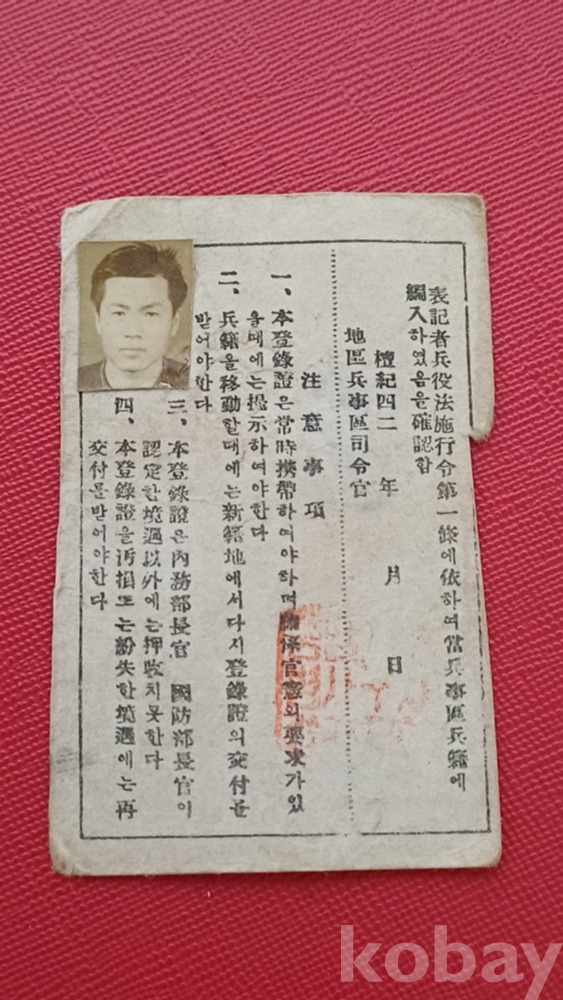 表記者兵役法施行令第一條에依하여當兵事區兵籍에
編入하였음을確認함
檀紀四二 年 月 日
地區兵事區司令官
注意事項
一、本登錄證은常時携帶하여야하며關係官憲의要求가있
을때에는提示하여야한다
二、兵籍을移動할때에는新籍地에서다시登錄證의交付를
받어야한다
三、本登錄證은內務部長官 國防部長官이
認定한境遇以外에는押收치못한다
四、本登錄證을汚損또는紛失한境遇에는再
交付를받어야한다
kobay